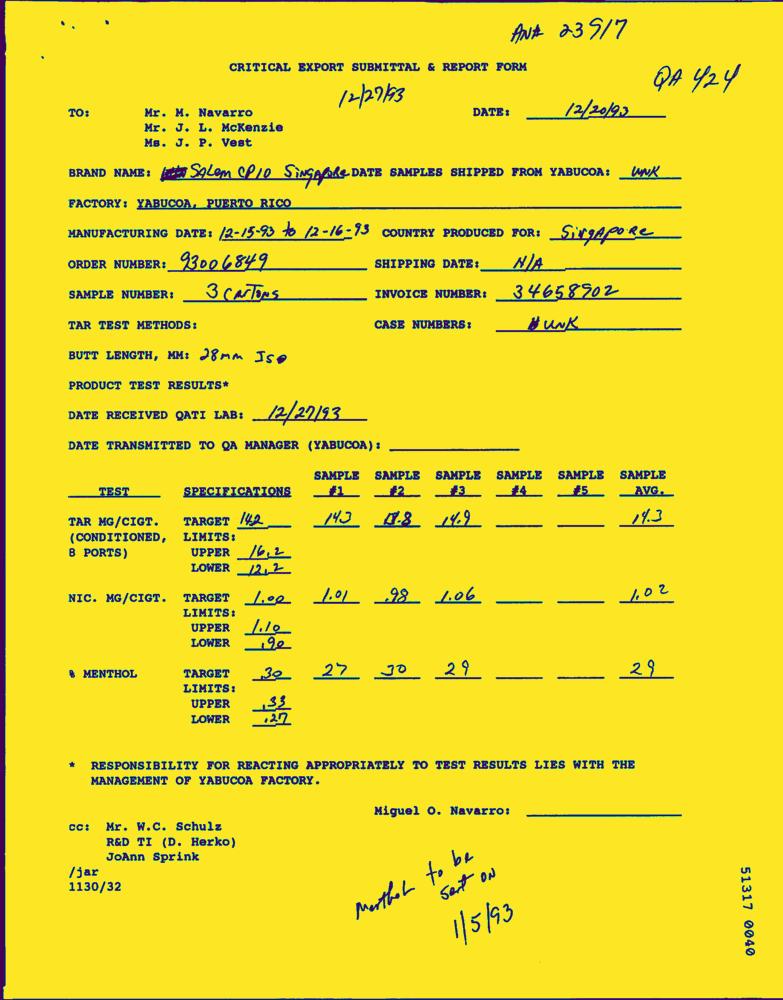 ANA 23917
CRITICAL EXPORT SUBMITTAL & REPORT FORM
QA 424
12/27/93
TO: Mr. M. Navarro DATE: 12/20/93
Mr. J. L. McKenzie
Ms. J. P. Vest
BRAND NAME: Salem CP10 Singapore DATE SAMPLES SHIPPED FROM YABUCOA: UNK
FACTORY: YABUCOA, PUERTO RICO
MANUFACTURING DATE: 12-15-93 to 12-16-93 COUNTRY PRODUCED FOR: Singapore
ORDER NUMBER: 93006849 SHIPPING DATE: N/A
SAMPLE NUMBER: 3 CARTONS INVOICE NUMBER: 34658902
TAR TEST METHODS: CASE NUMBERS: UNK
BUTT LENGTH, MM: 28mm ISO
PRODUCT TEST RESULTS*
DATE RECEIVED QATI LAB: 12/27/93
DATE TRANSMITTED TO QA MANAGER (YABUCOA):
SAMPLE SAMPLE SAMPLE SAMPLE SAMPLE SAMPLE
TEST SPECIFICATIONS #1 #2 #3 #4 #5 AVG.
TAR MG/CIGT. TARGET 14.2 14.3 14.9 14.3
(CONDITIONED, LIMITS:
8 PORTS) UPPER 16.2
LOWER 12.2
NIC. MG/CIGT. TARGET 1.00 1.01 .98 1.06 1.02
LIMITS:
UPPER 1.10
LOWER .90
% MENTHOL TARGET .30 27 30 29 29
LIMITS:
UPPER .33
LOWER .27
* RESPONSIBILITY FOR REACTING APPROPRIATELY TO TEST RESULTS LIES WITH THE
MANAGEMENT OF YABUCOA FACTORY.
Miguel O. Navarro:
cc: Mr. W.C. Schulz
R&D TI (D. Herko)
JoAnn Sprink
/jar
1130/32
Menthol to be
sent on
1/5/93
51317 0040